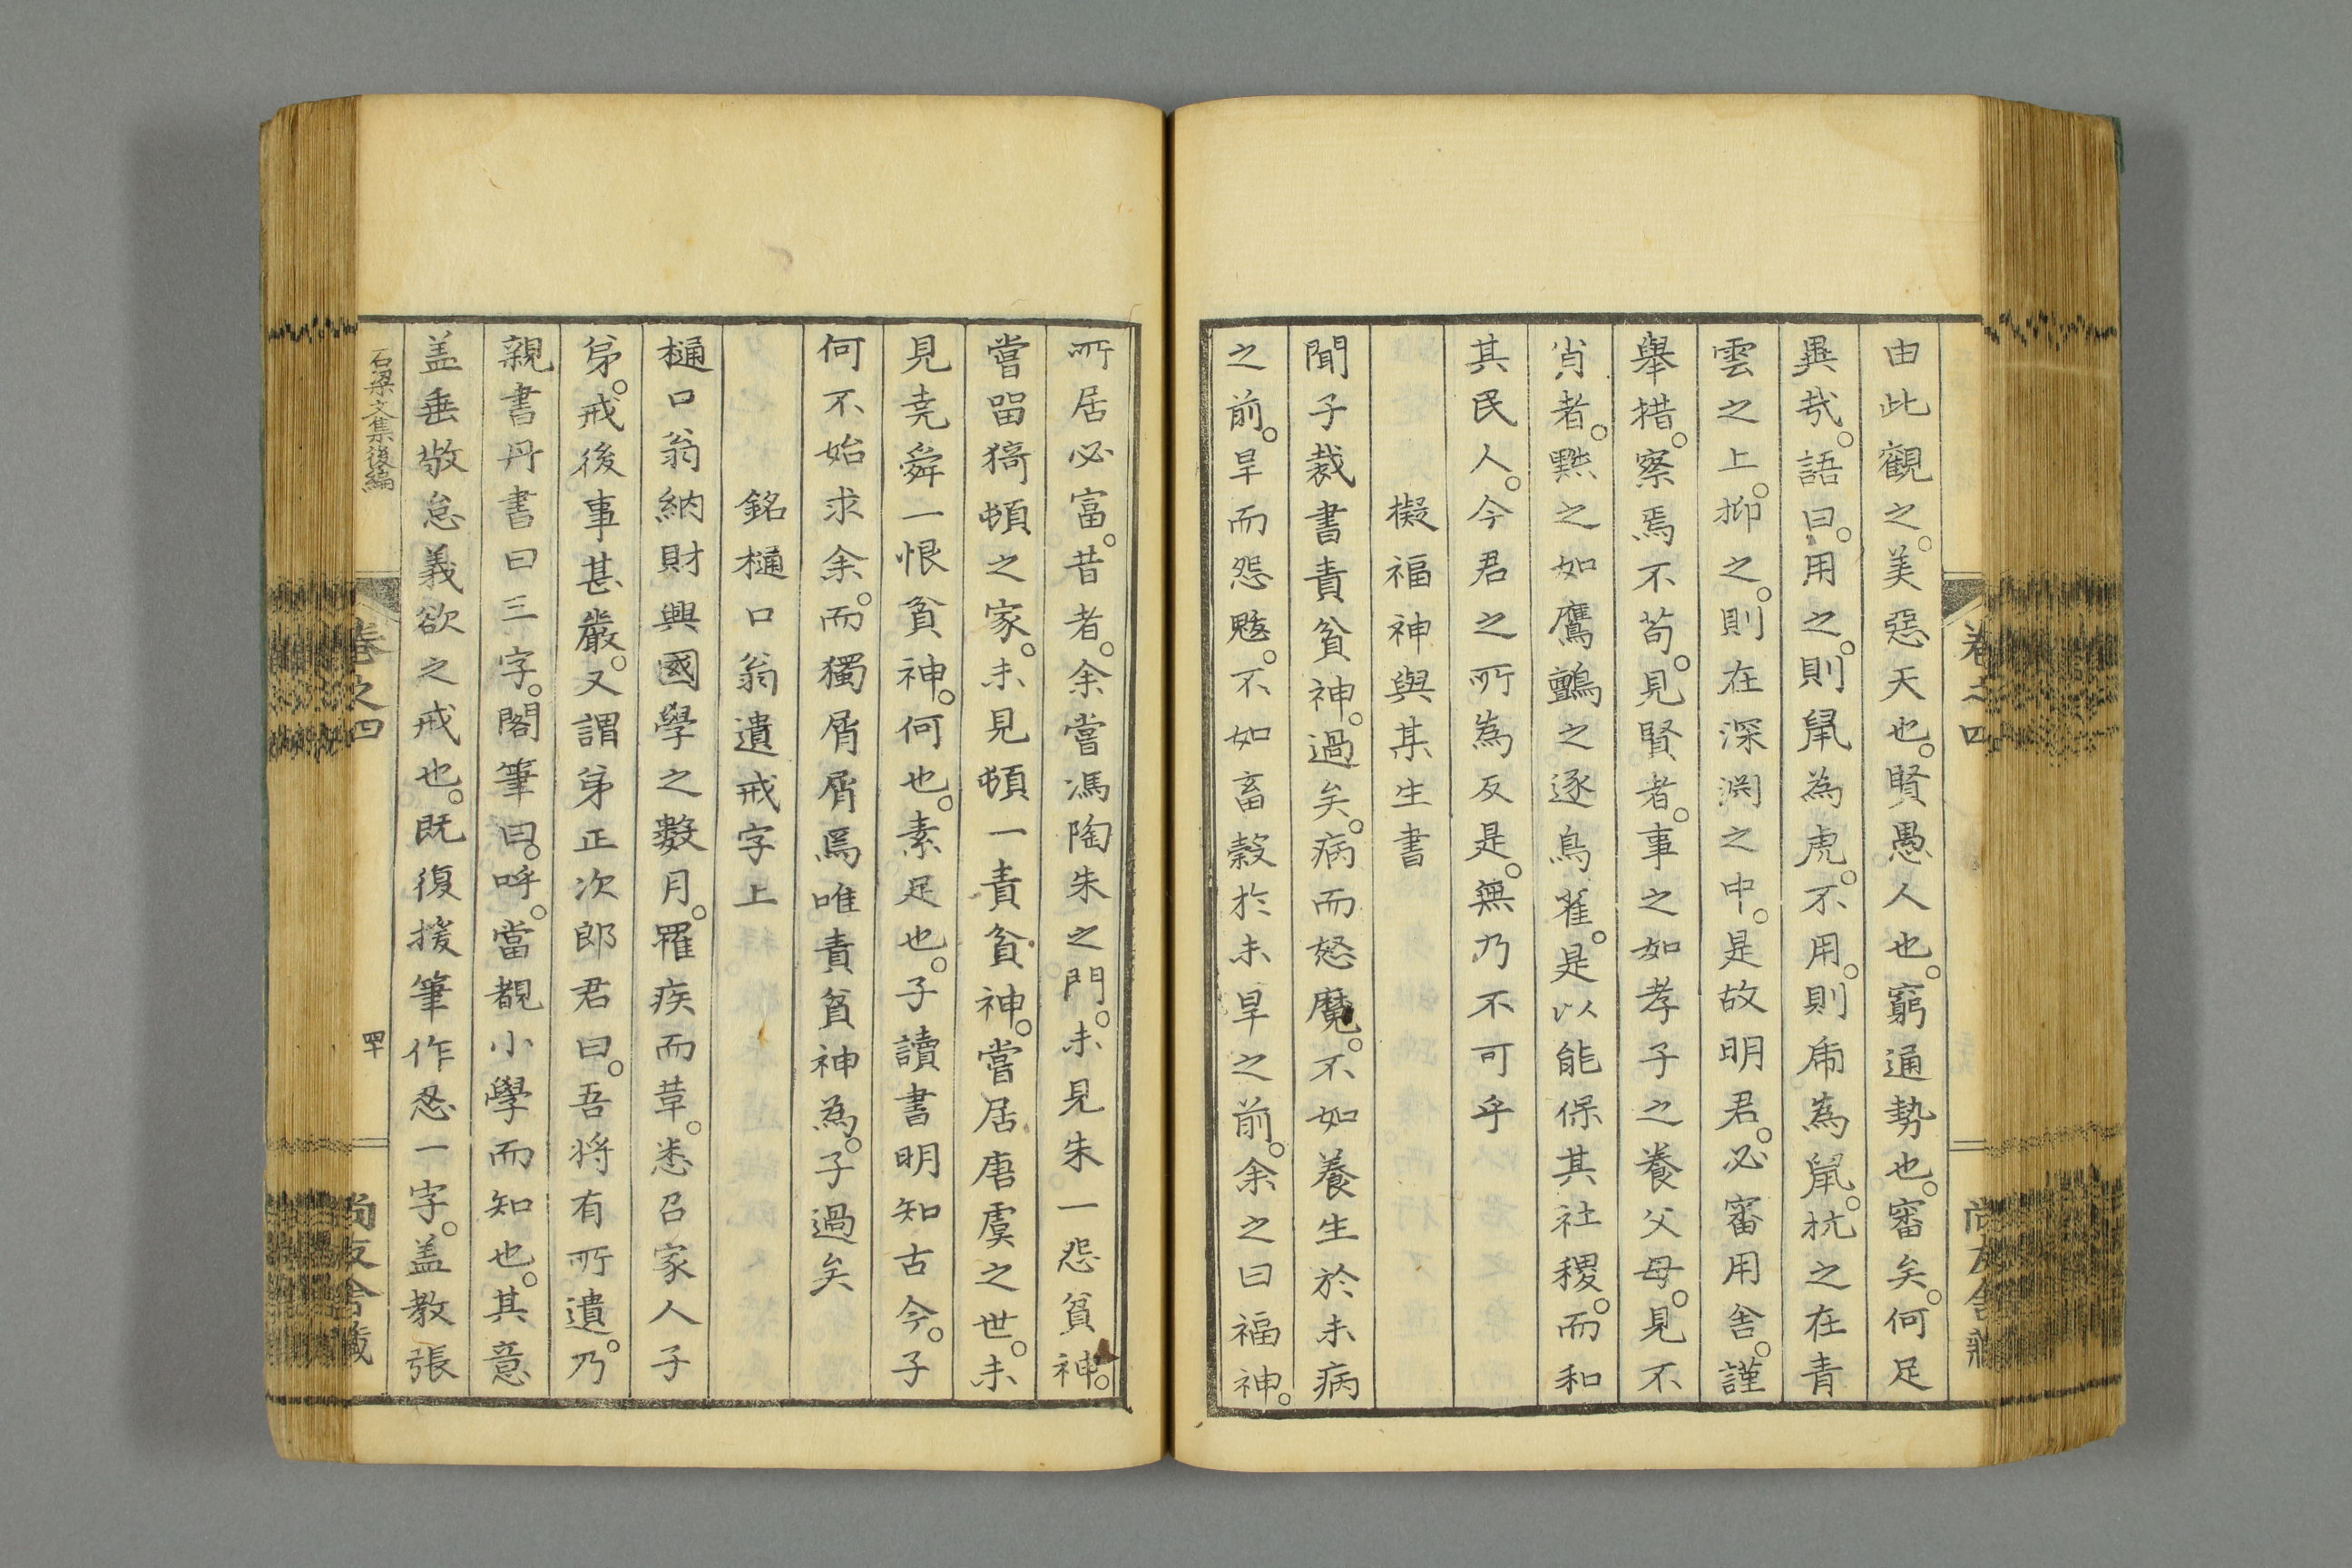 由此觀之。美惡天也。賢愚人也。窮通勢也。審矣。何足
異哉。語曰。用之。則鼠為虎。不用。則虎為鼠。抗之在青
雲之上。抑之。則在深淵之中。是故明君。必審用舎。謹
舉措。察焉不苟。見賢者。事之如孝子之養父母。見不
肖者。黙之如鷹鸇之逐鳥雀。是以能保其社稷。而和
其民人。今君之所為反是。無乃不可乎
擬福神與某生書
聞子裁書責貧神。過矣。病而怒魔。不如養生於未病
之前。旱而怨魃。不如畜穀於未旱之前。余之曰福神。
所居必富。昔者。余嘗馮陶朱之門。未見朱一怨貧神。
嘗畱猗頓之家。未見頓一責貧神。嘗居唐虞之世。未
見堯舜一恨貧神。何也。素足也。子讀書明知古今。子
何不始求余。而獨屑屑焉唯責貧神為。子過矣
銘樋口翁遺戒字上
樋口翁納財興國學之數月。罹疾而革。悉召家人子
弟。戒後事甚嚴。又謂弟正次郎君曰。吾将有所遺。乃
親書丹書曰三字。閣筆曰。呼。當覩小學而知也。其意
盖垂敬怠義欲之戒也。既復援筆作忍一字。盖教張
石梁文集後編
卷之四
四十
尚友舎藏
卷之四
尚友舎藏